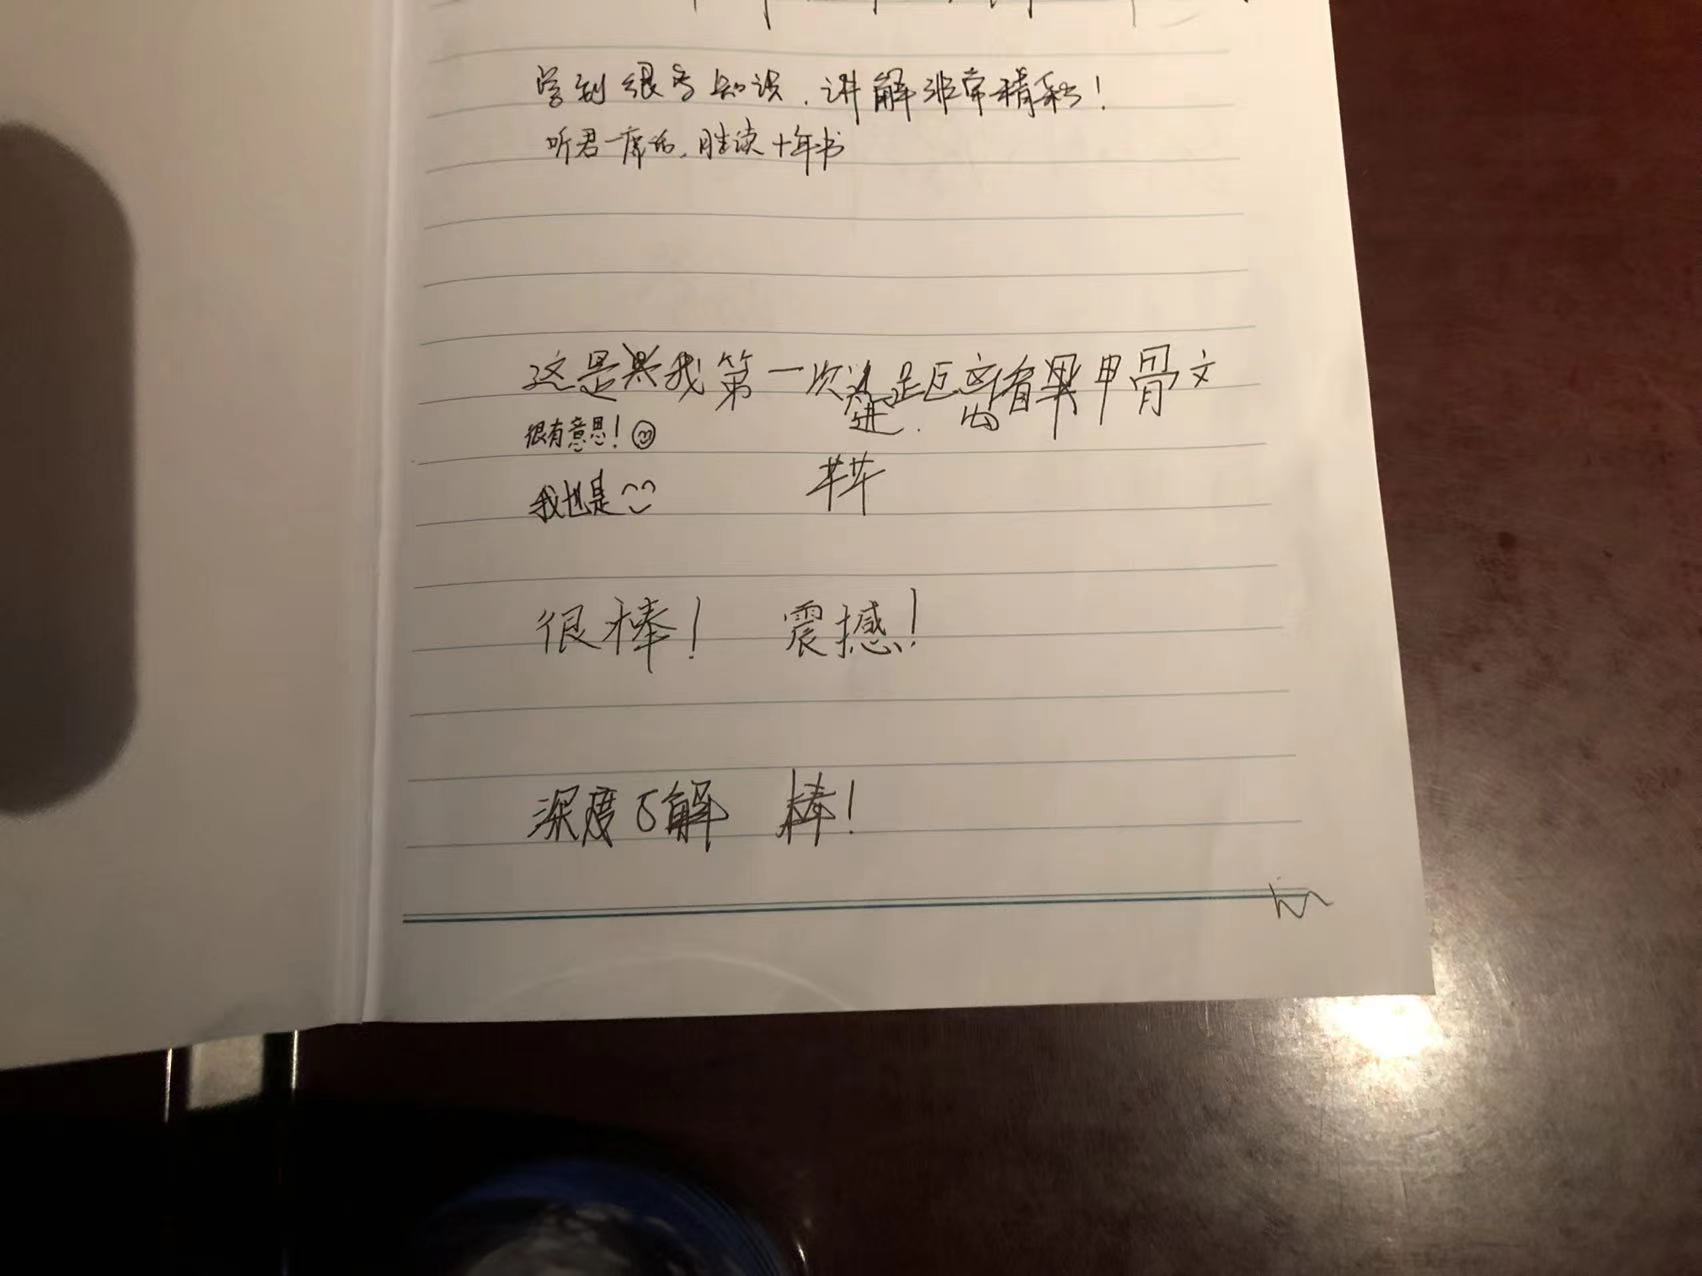 学到很多知识，讲解非常精彩！
听君一席话，胜读十年书
这是我第一次进距离看甲骨文
很有意思！
我也是
很棒！ 震撼！
深度了解 棒！